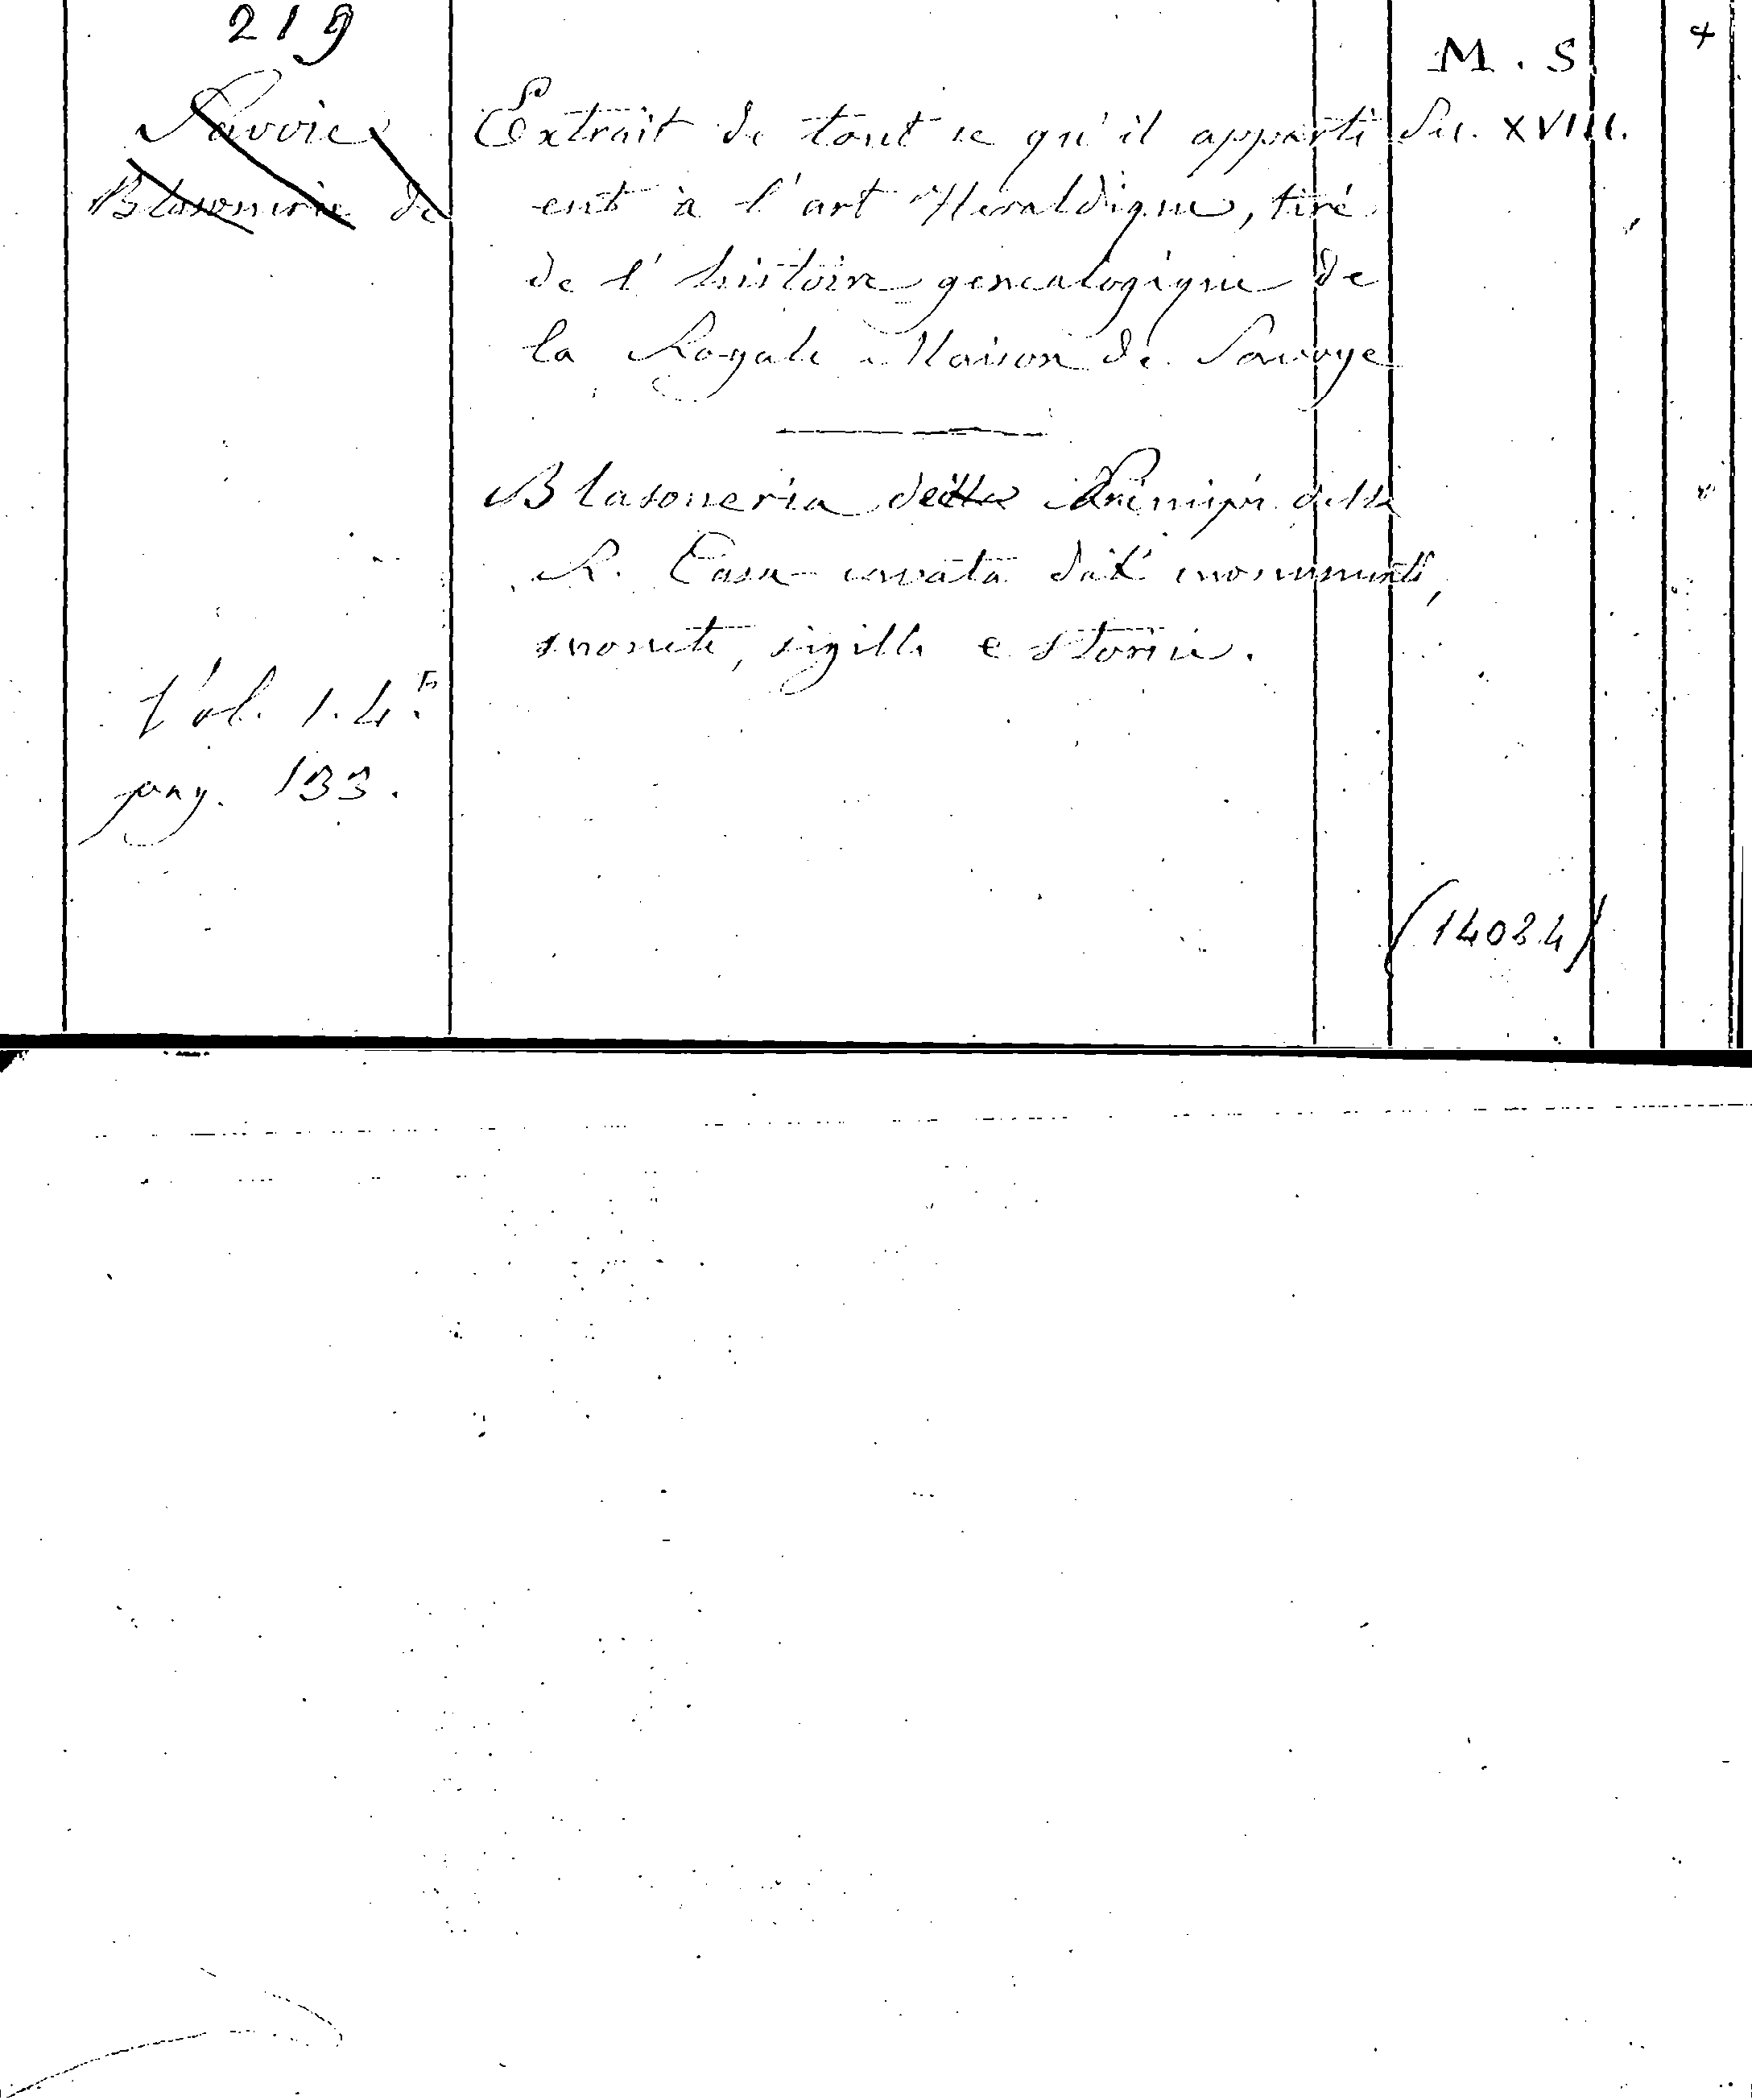 219
M. S
Savoie
Blasonerie de
Extrait de tout ce qu'il apparti
Sec. XVIII.
ent à l'art Heraldique, tiré
de l'histoire genealogique de
la Royale Maison de Savoye
Blasoneria dei Principi della
R. Casa cavata dai monumenti,
monete, sigilli e storie.
Vol. 1. 4.to
pag. 133.
(14084)